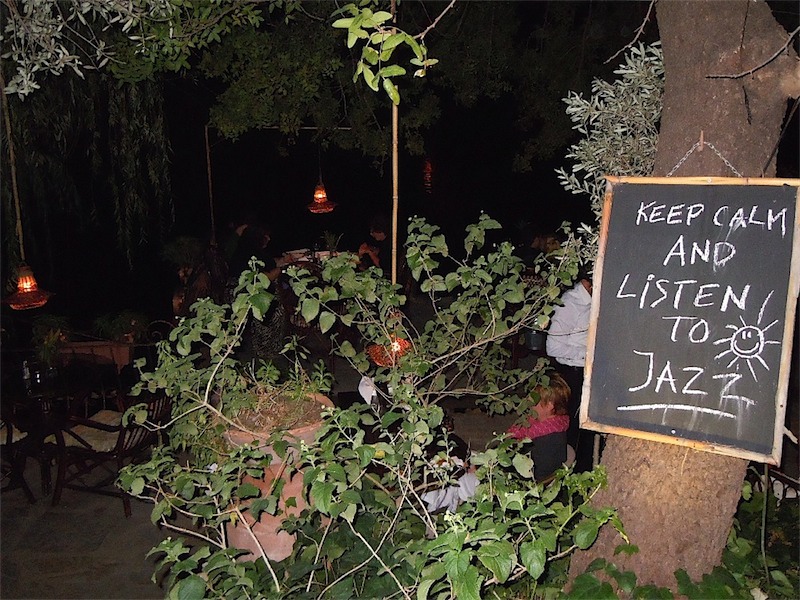 KEEP CALM
AND
LiSTEN
TO
JAZZ